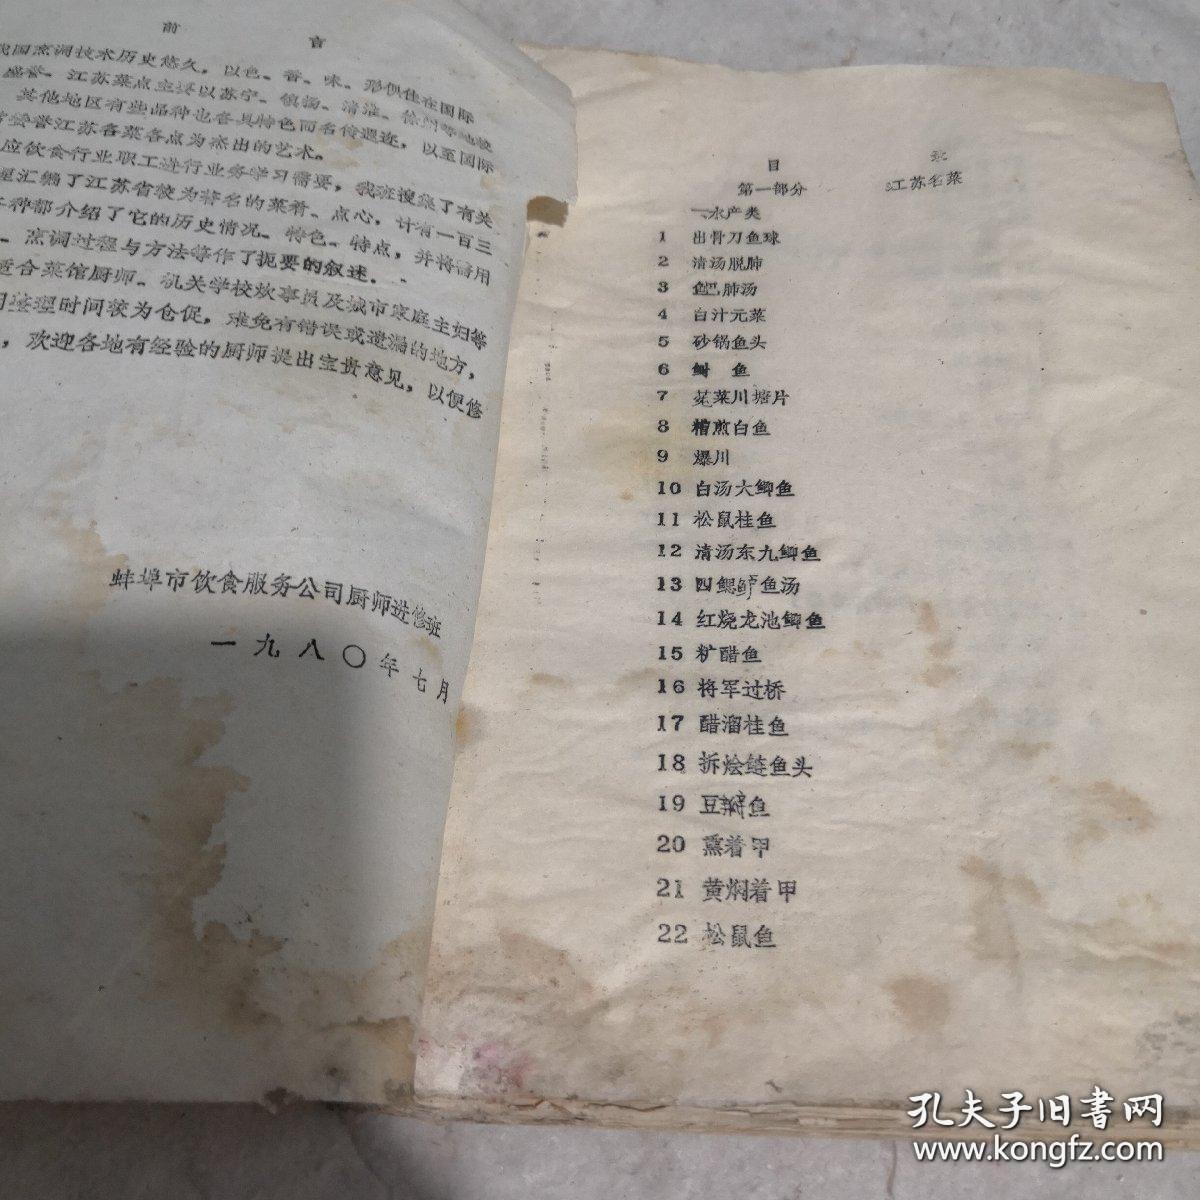 前言
我国烹调技术历史悠久，以色、香、味、形俱佳在国际
盛誉。江苏菜点主要以苏宁、镇扬、清淮、徐州等地较
其他地区有些品种也各具特色而名传遐迩，以至国际
尝誉江苏各菜各点为杰出的艺术。
应饮食行业职工进行业务学习需要，我班搜集了有关
汇编了江苏省较为著名的菜肴、点心，计有一百三
种都介绍了它的历史情况、特色、特点，并将需用
、烹调过程与方法等作了扼要的叙述．
适合菜馆厨师、机关学校炊事员及城市家庭主妇等
整理时间较为仓促，难免有错误或遗漏的地方，
，欢迎各地有经验的厨师提出宝贵意见，以便修
蚌埠市饮食服务公司厨师进修班
一九八〇年七月
目录
第一部分 江苏名菜
一、水产类
1 出骨刀鱼球
2 清汤脱肺
3 鱼巴肺汤
4 白汁元菜
5 砂锅鱼头
6 鲥鱼
7 菜川塘片
8 糟煎白鱼
9 爆川
10 白汤大鲫鱼
11 松鼠桂鱼
12 清汤东九鲫鱼
13 四鳃鲈鱼汤
14 红烧龙池鲫鱼
15 醋鱼
16 将军过桥
17 醋溜桂鱼
18 拆烩鲢鱼头
19 豆瓣鱼
20 熏着甲
21 黄焖着甲
22 松鼠鱼
孔夫子旧书网
www.kongfz.com